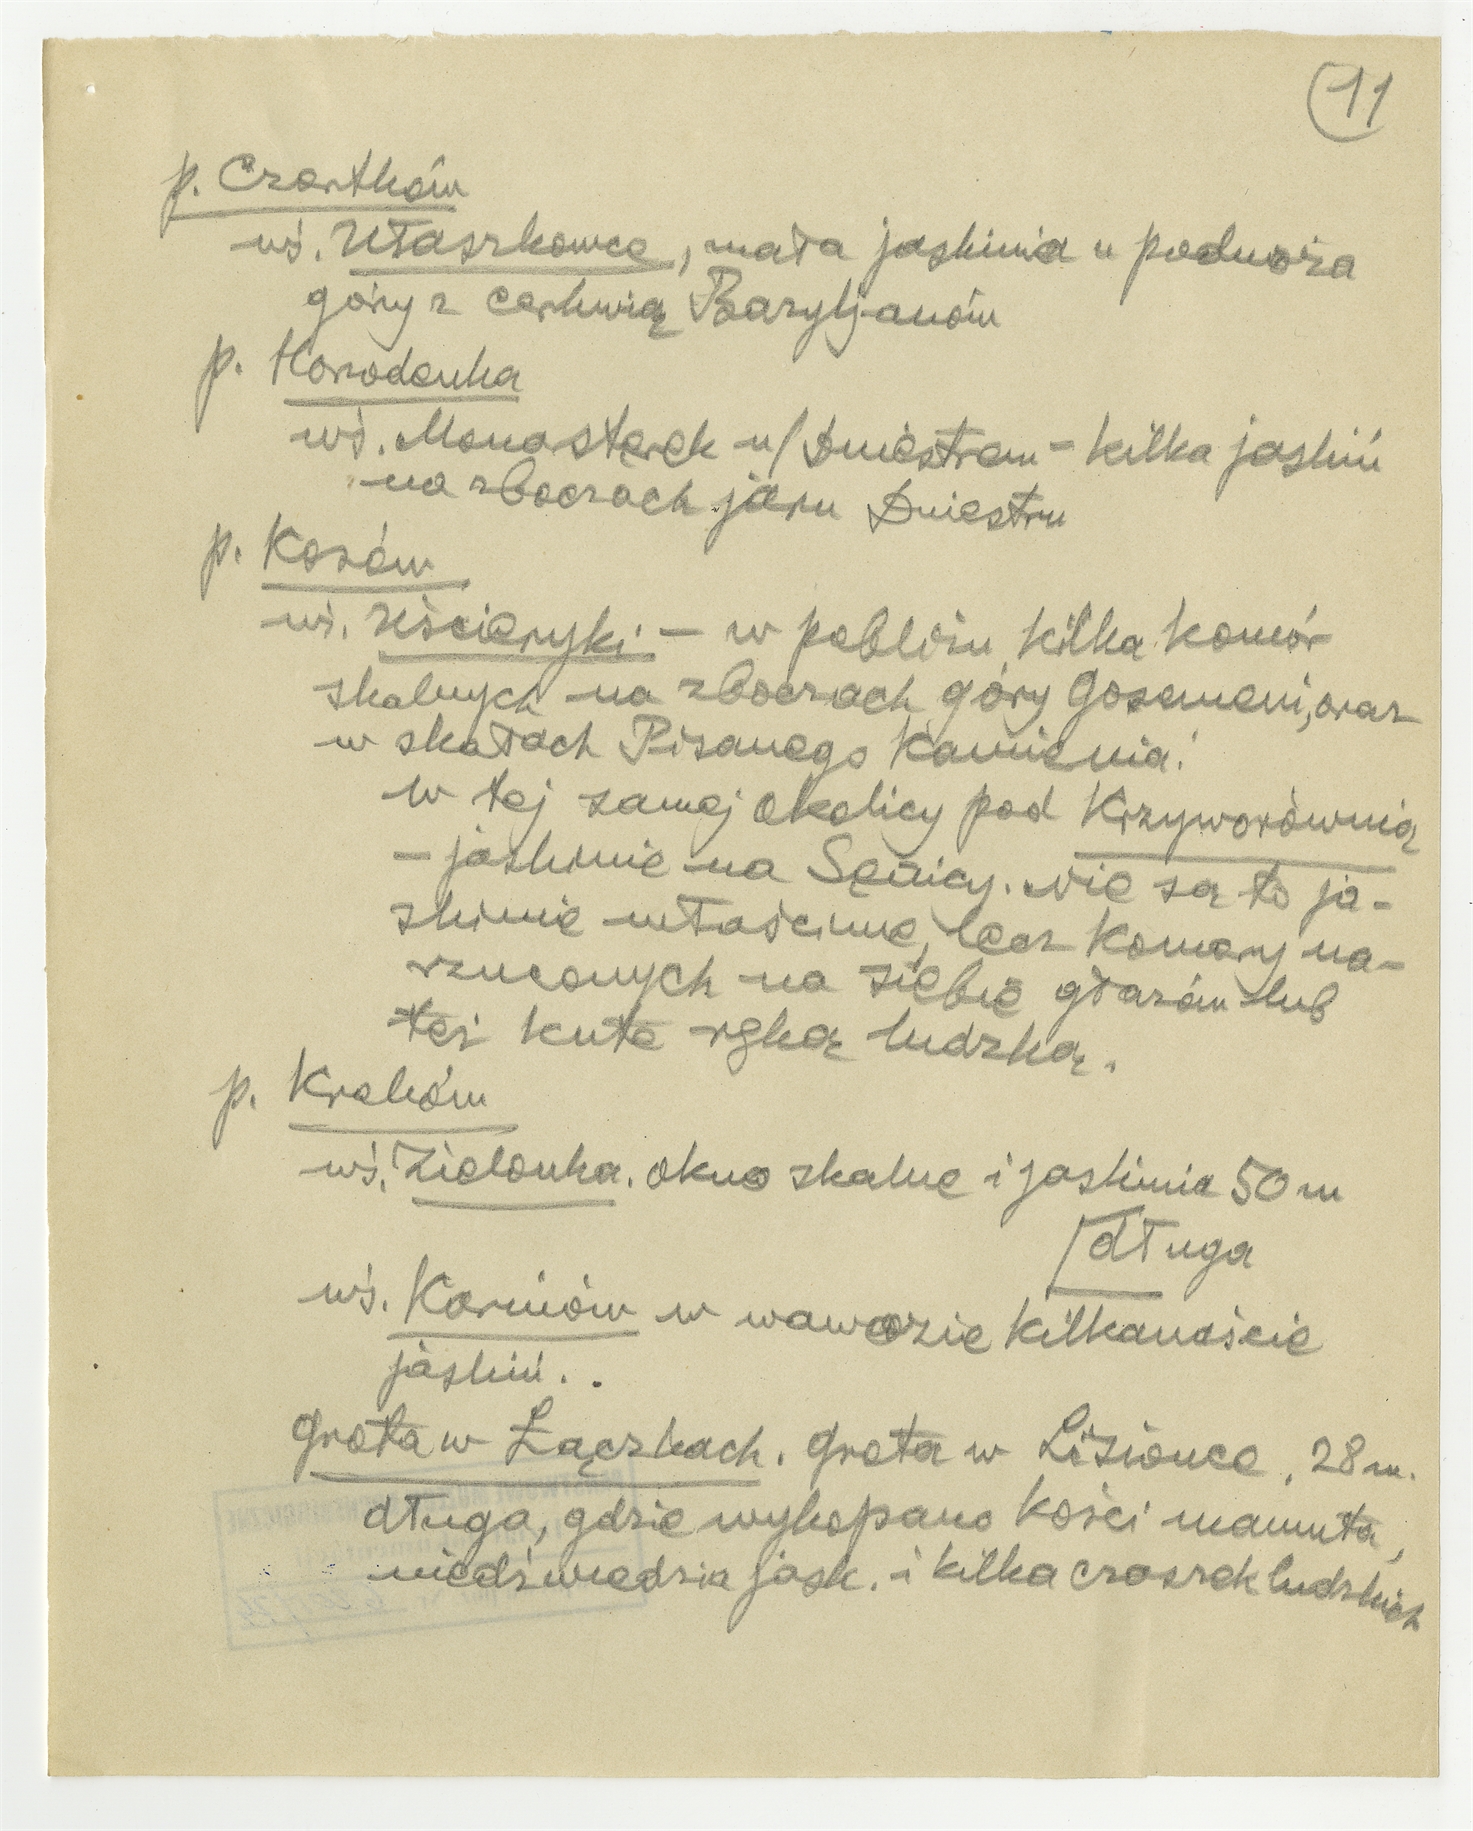 11
p. Czortków
wś. Ułaszkowce, mała jaskinia u podnóża
góry z cerkwią Bazyljanów
p. Horodenka
wś. Monasterek n/Dniestrem - kilka jaskiń
na zboczach jaru Dniestru
p. Kosów
wś. Uścieryki - w pobliżu kilka komór
skalnych na zboczach góry Gosemeni, oraz
w skałach Pisanego Kamienia.
w tej samej okolicy pod Krzyworównią
- jaskinie na Sęzicy. Nie są to ja-
skinie właściwe, lecz komory na-
rzuconych na siebie głazów lub
też kute ręką ludzką.
p. Kraków
wś. Zielonka. okno skalne i jaskinia 50 m
długa
wś. Karniów w wawozie kilkanaście
jaskiń..
Grota w Łączkach. Grota w Lisionce, 28 m.
długa, gdzie wykopano kości mamuta,
niedźwiedzia jask. i kilka czaszek ludzkich